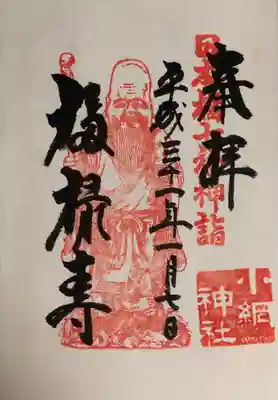 奉拝
日本橋七福神詣
小網
神社
平成三十一年一月七日
福禄寿